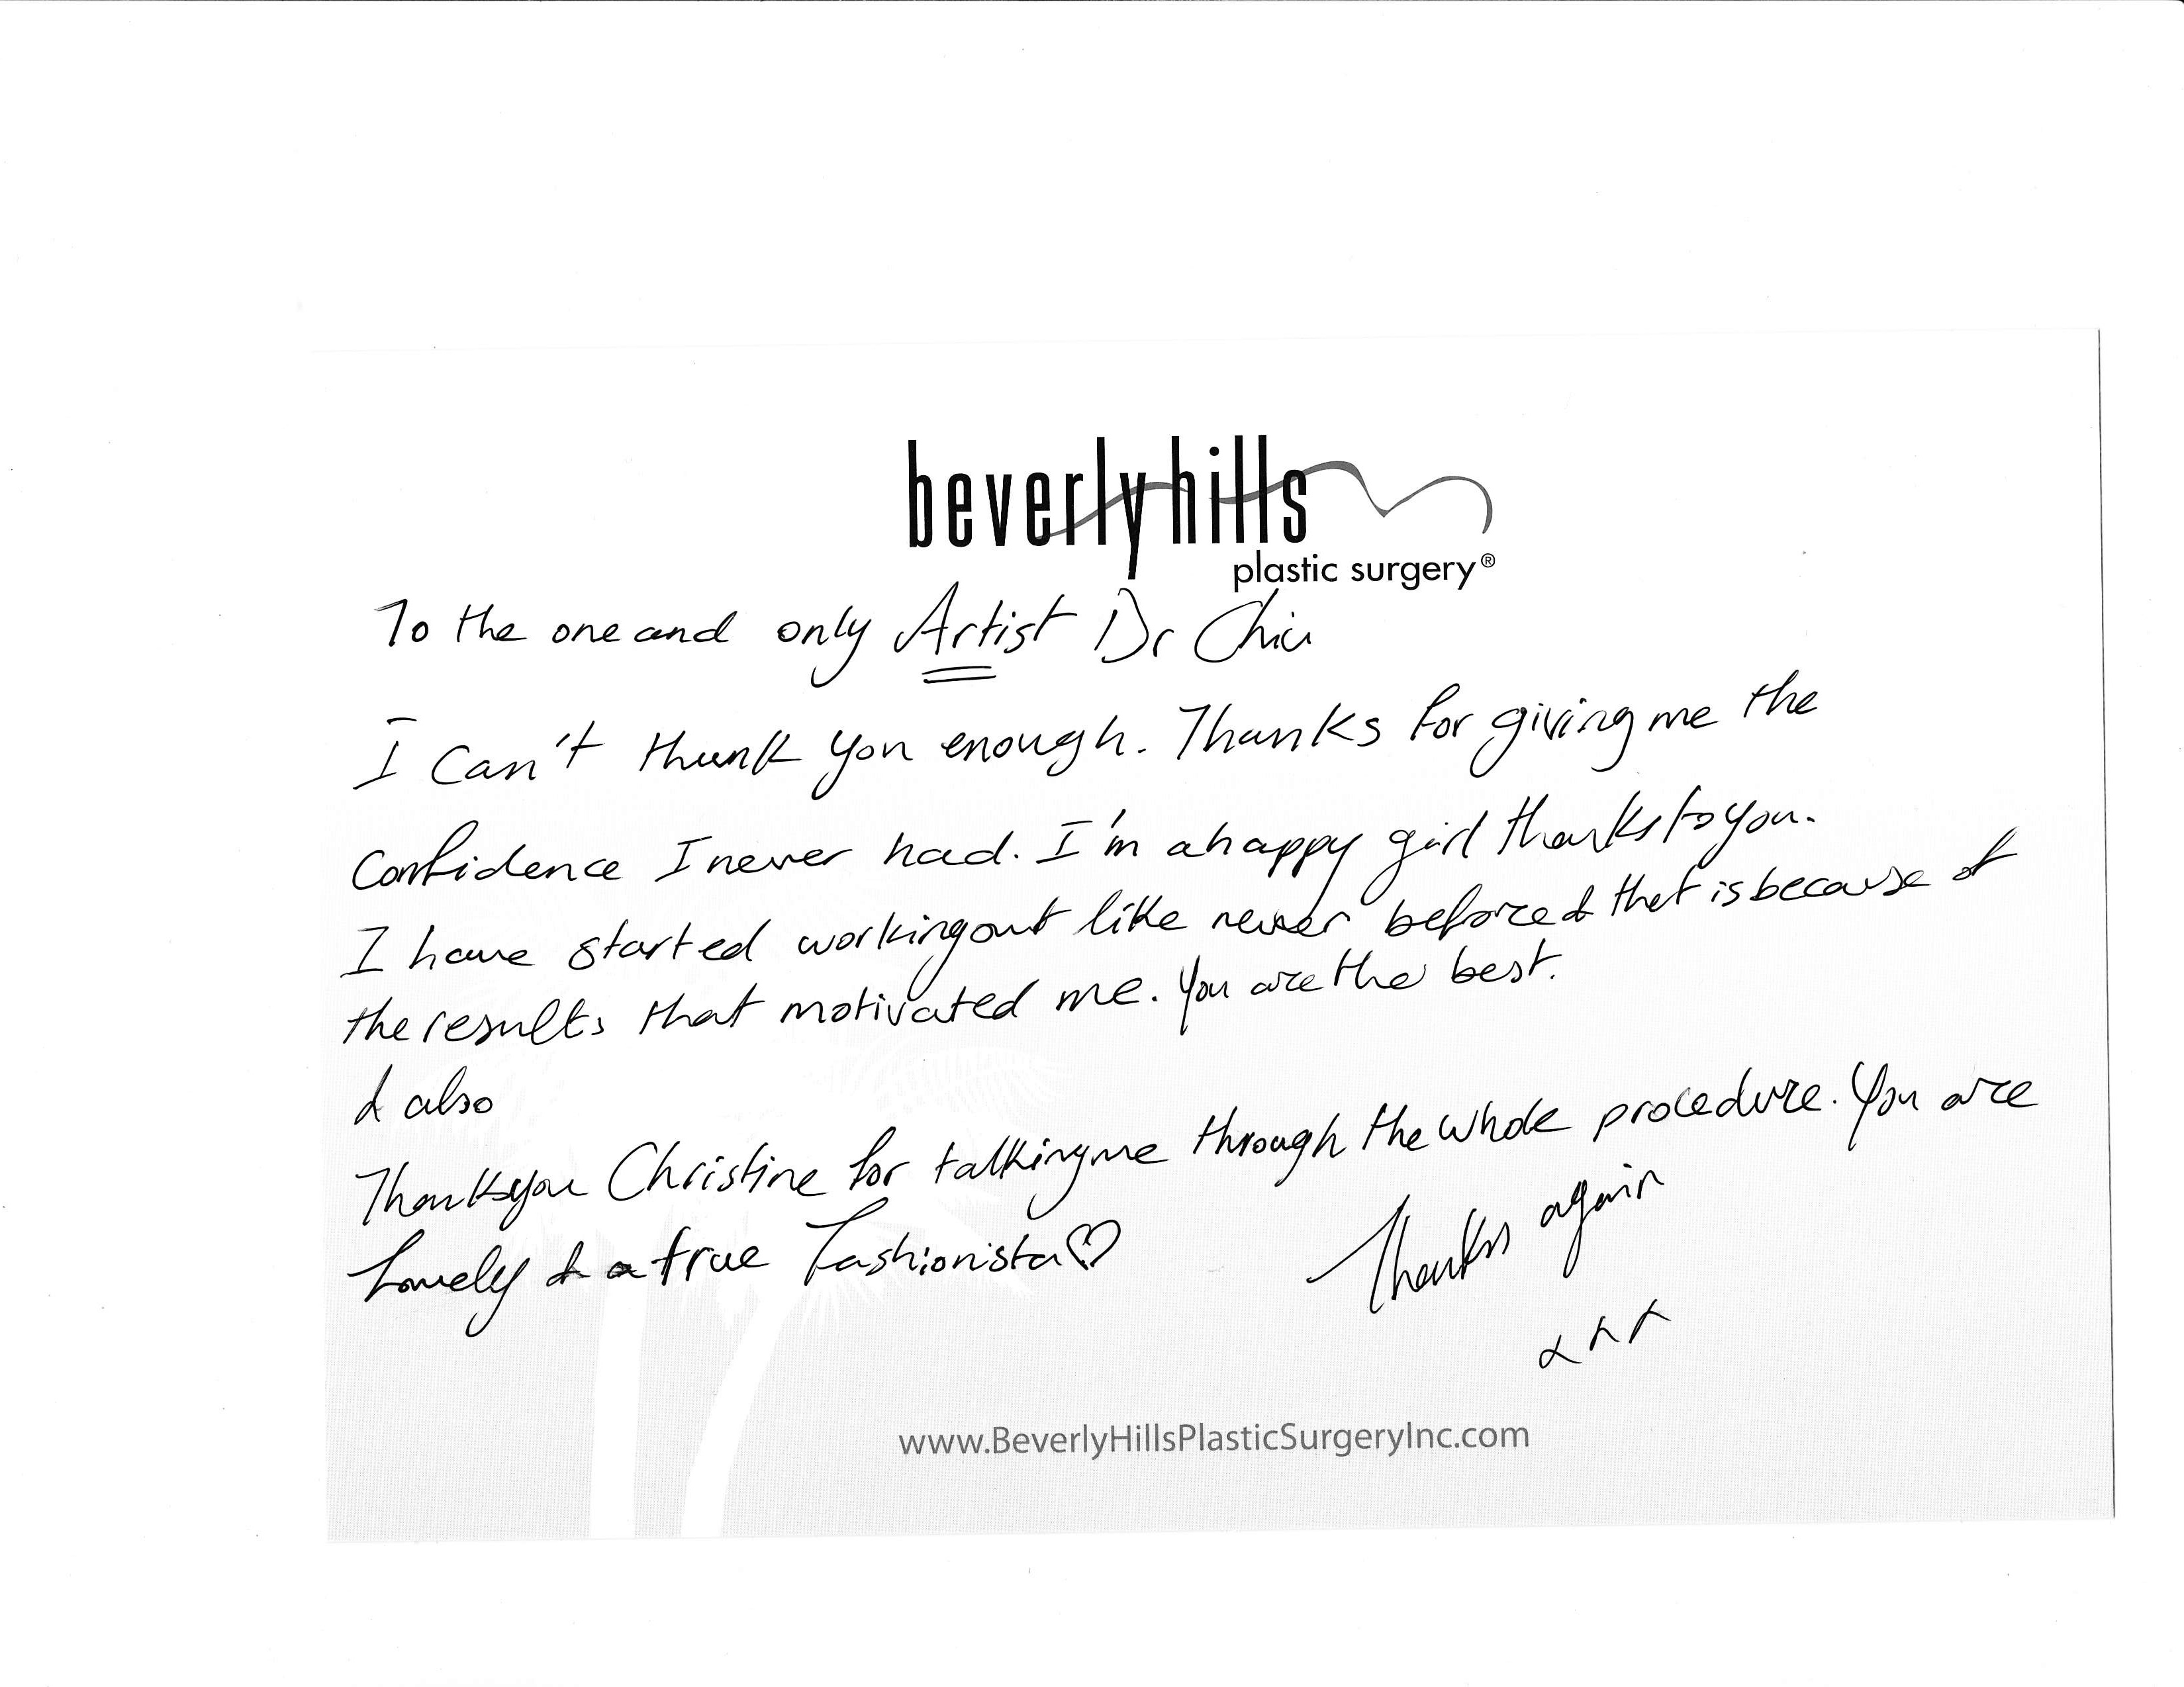 beverly hills
plastic surgery®
To the one and only Artist Dr Chiu
I Can't thank you enough. Thanks for giving me the
Confidence I never had. I'm a happy girl thanks to you.
I have started working out like never before & that is because of
the results that motivated me. You are the best.
& also
Thank you Christine for talking me through the whole procedure. You are
Lovely & a true Fashionista♡
Thanks again
xxx
www.BeverlyHillsPlasticSurgeryInc.com